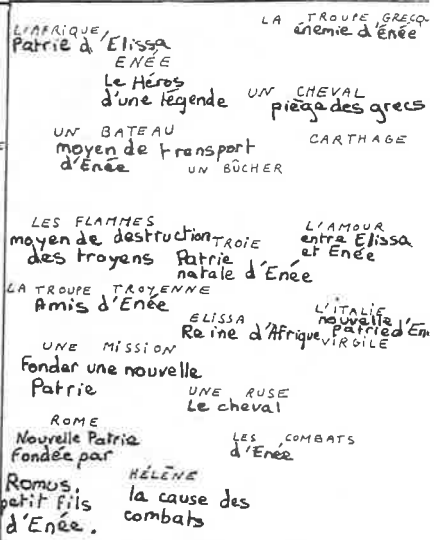 L'AFRIQUE,
Patrie d'Elissa
LA TROUPE GRECQ
énemie d'Énée
ENÉE
Le Héros
d'une légende
UN CHEVAL
piège des grecs
UN BATEAU
moyen de transport
d'Enée
CARTHAGE
UN BÛCHER
LES FLAMMES
moyen de destruction
des troyens
TROIE
Patrie
natale d'Énée
L'AMOUR
entre Elissa
et Enée
LA TROUPE TROYENNE
Amis d'Enée
ELISSA
Reine d'Afrique
L'ITALIE
nouvelle
Patrie d'En
VIRGILE
UNE MISSION
Fonder une nouvelle
Patrie
UNE RUSE
Le cheval
ROME
Nouvelle Patrie
fondée par
Romus,
petit fils
d'Enée.
LES COMBATS
d'Enée
HÉLÈNE
la cause des
combats